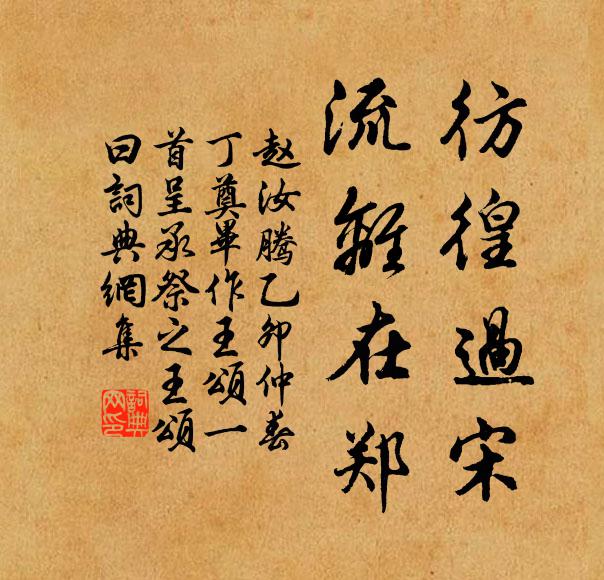 彷徨過宋
流離在郑
赵汝騰乙卯仲春
丁奠畢作王頌一
首呈承祭之王頌
曰詞典網集
詞典
网印